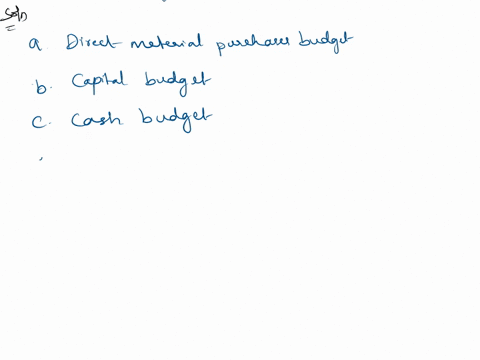 Soln
a Direct material purchases budget
b. Capital budget
c. Cash budget